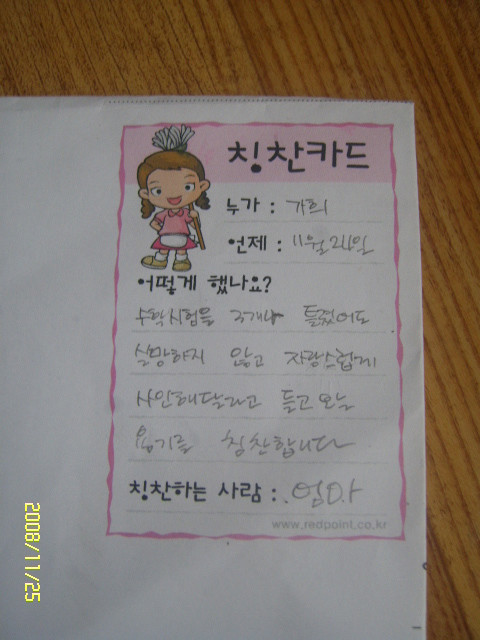 칭찬카드
누가 : 가희
언제 : 11월 24일
어떻게 했나요?
수학시험을 3개나 틀렸어도
실망하지 않고 자랑스럽게
사인해달라고 들고 오는
용기를 칭찬합니다
칭찬하는 사람 : 엄마
www.redpoint.co.kr
2008/11/25